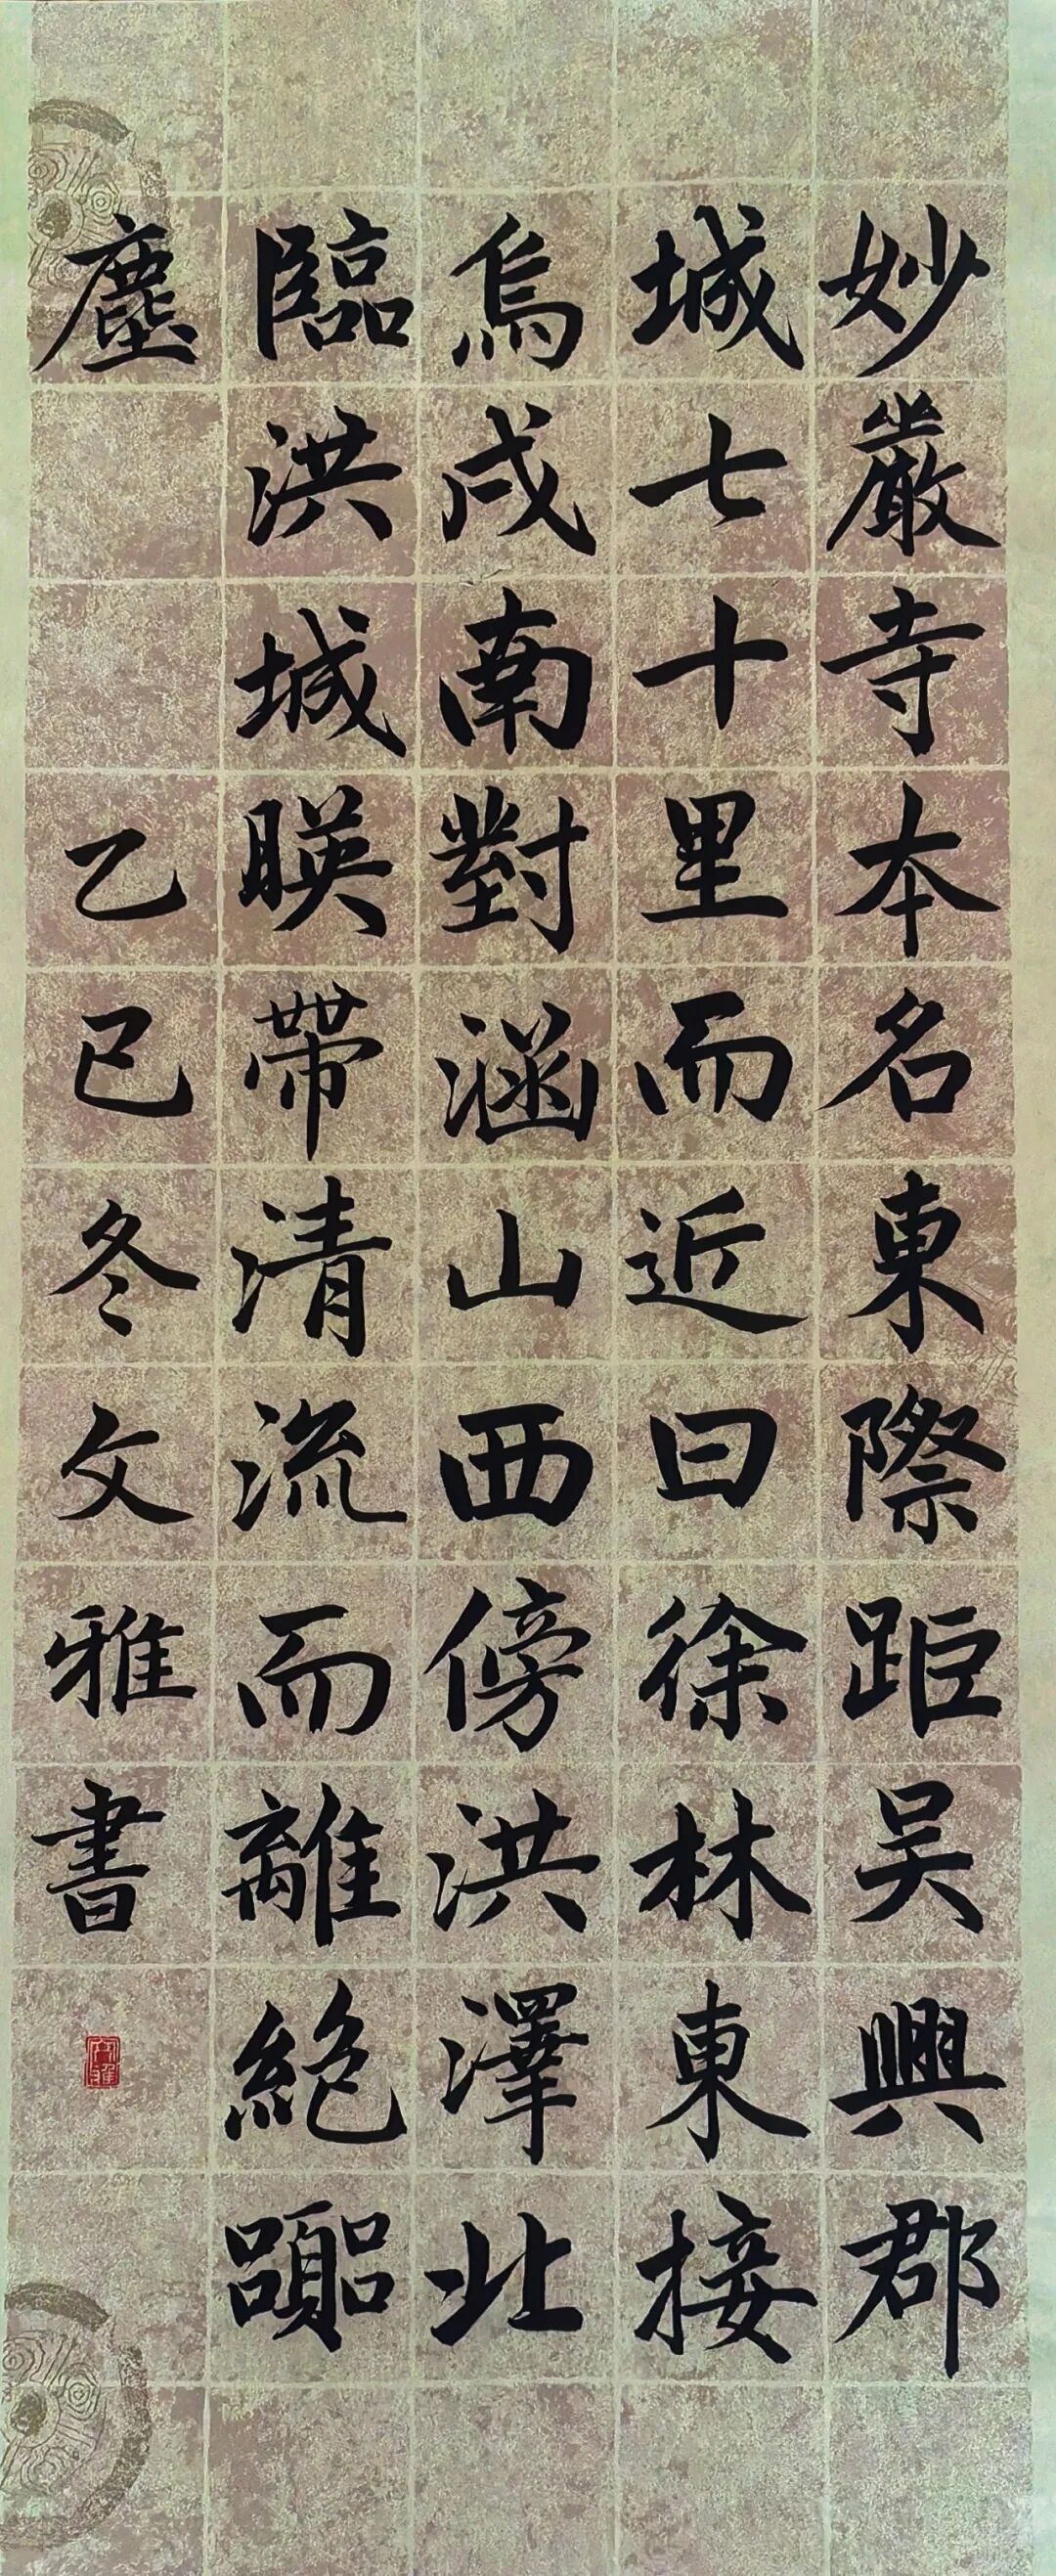 妙嚴寺本名東際距吴興郡
城七十里而近曰徐林東接
烏戍南對涵山西傍洪澤北
臨洪城暎帶清流而離絶囂
塵
乙巳冬文雅書
文雅